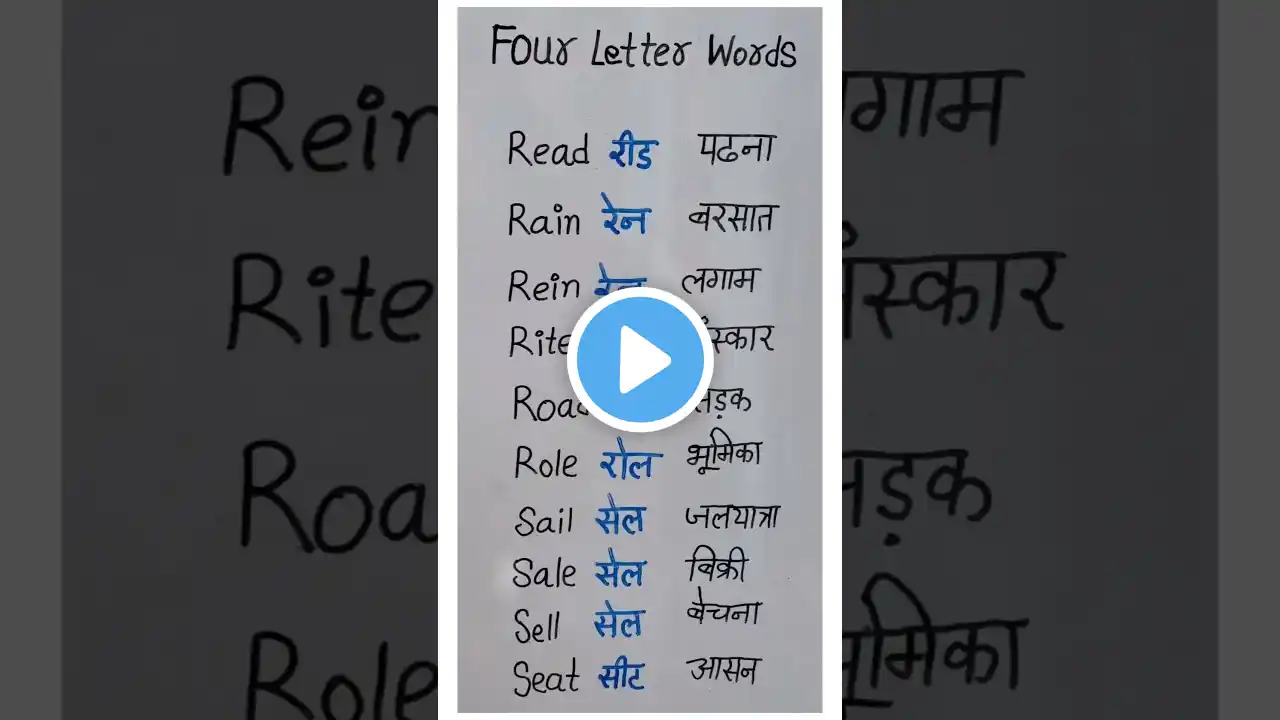 Four Letter Words
Read रीड पढना
Rain रेन बरसात
Rein लगाम
Rite
Role रोल भूमिका
Sail सेल जलयात्रा
Sale सेल बिक्री
Sell सेल बेचना
Seat सीट आसन